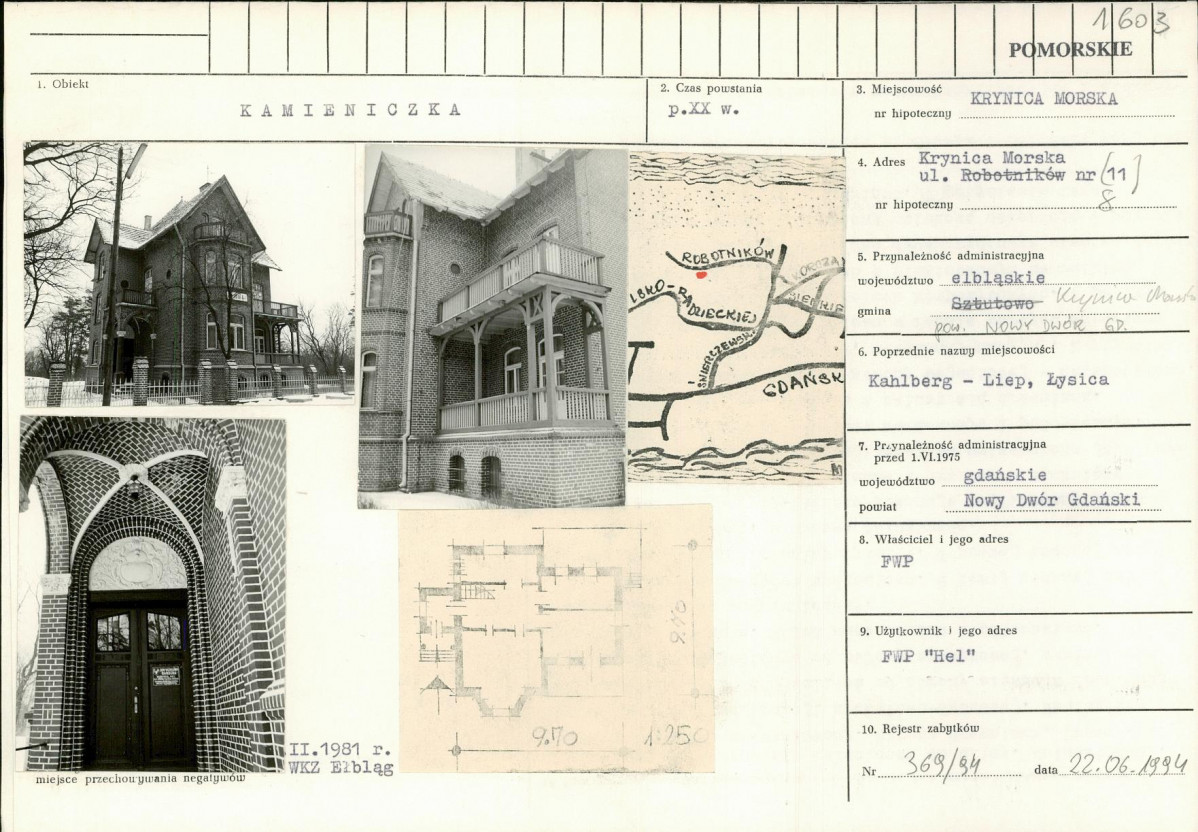 1603
POMORSKIE
1. Obiekt
KAMIENICZKA
2. Czas powstania
p.XX w.
3. Miejscowość
KRYNICA MORSKA
nr hipoteczny
4. Adres Krynica Morska
ul. Robotników nr (11)
8
nr hipoteczny
5. Przynależność administracyjna
województwo elbląskie
gmina Sztutowo Krynica Morska
pow. NOWY DWÓR GD.
6. Poprzednie nazwy miejscowości
Kahlberg - Liep, Łysica
7. Przynależność administracyjna
przed 1.VI.1975
województwo gdańskie
powiat Nowy Dwór Gdański
8. Właściciel i jego adres
FWP
9. Użytkownik i jego adres
FWP "Hel"
10. Rejestr zabytków
Nr 369/94 data 22.06.1994
ROBOTNIKÓW
RADZIECKIEJ
ŚWIERCZEWSKI
GDAŃSK
9.40
9.70
1:250
II.1981 r.
WKZ Elbląg
miejsce przechowywania negatywów